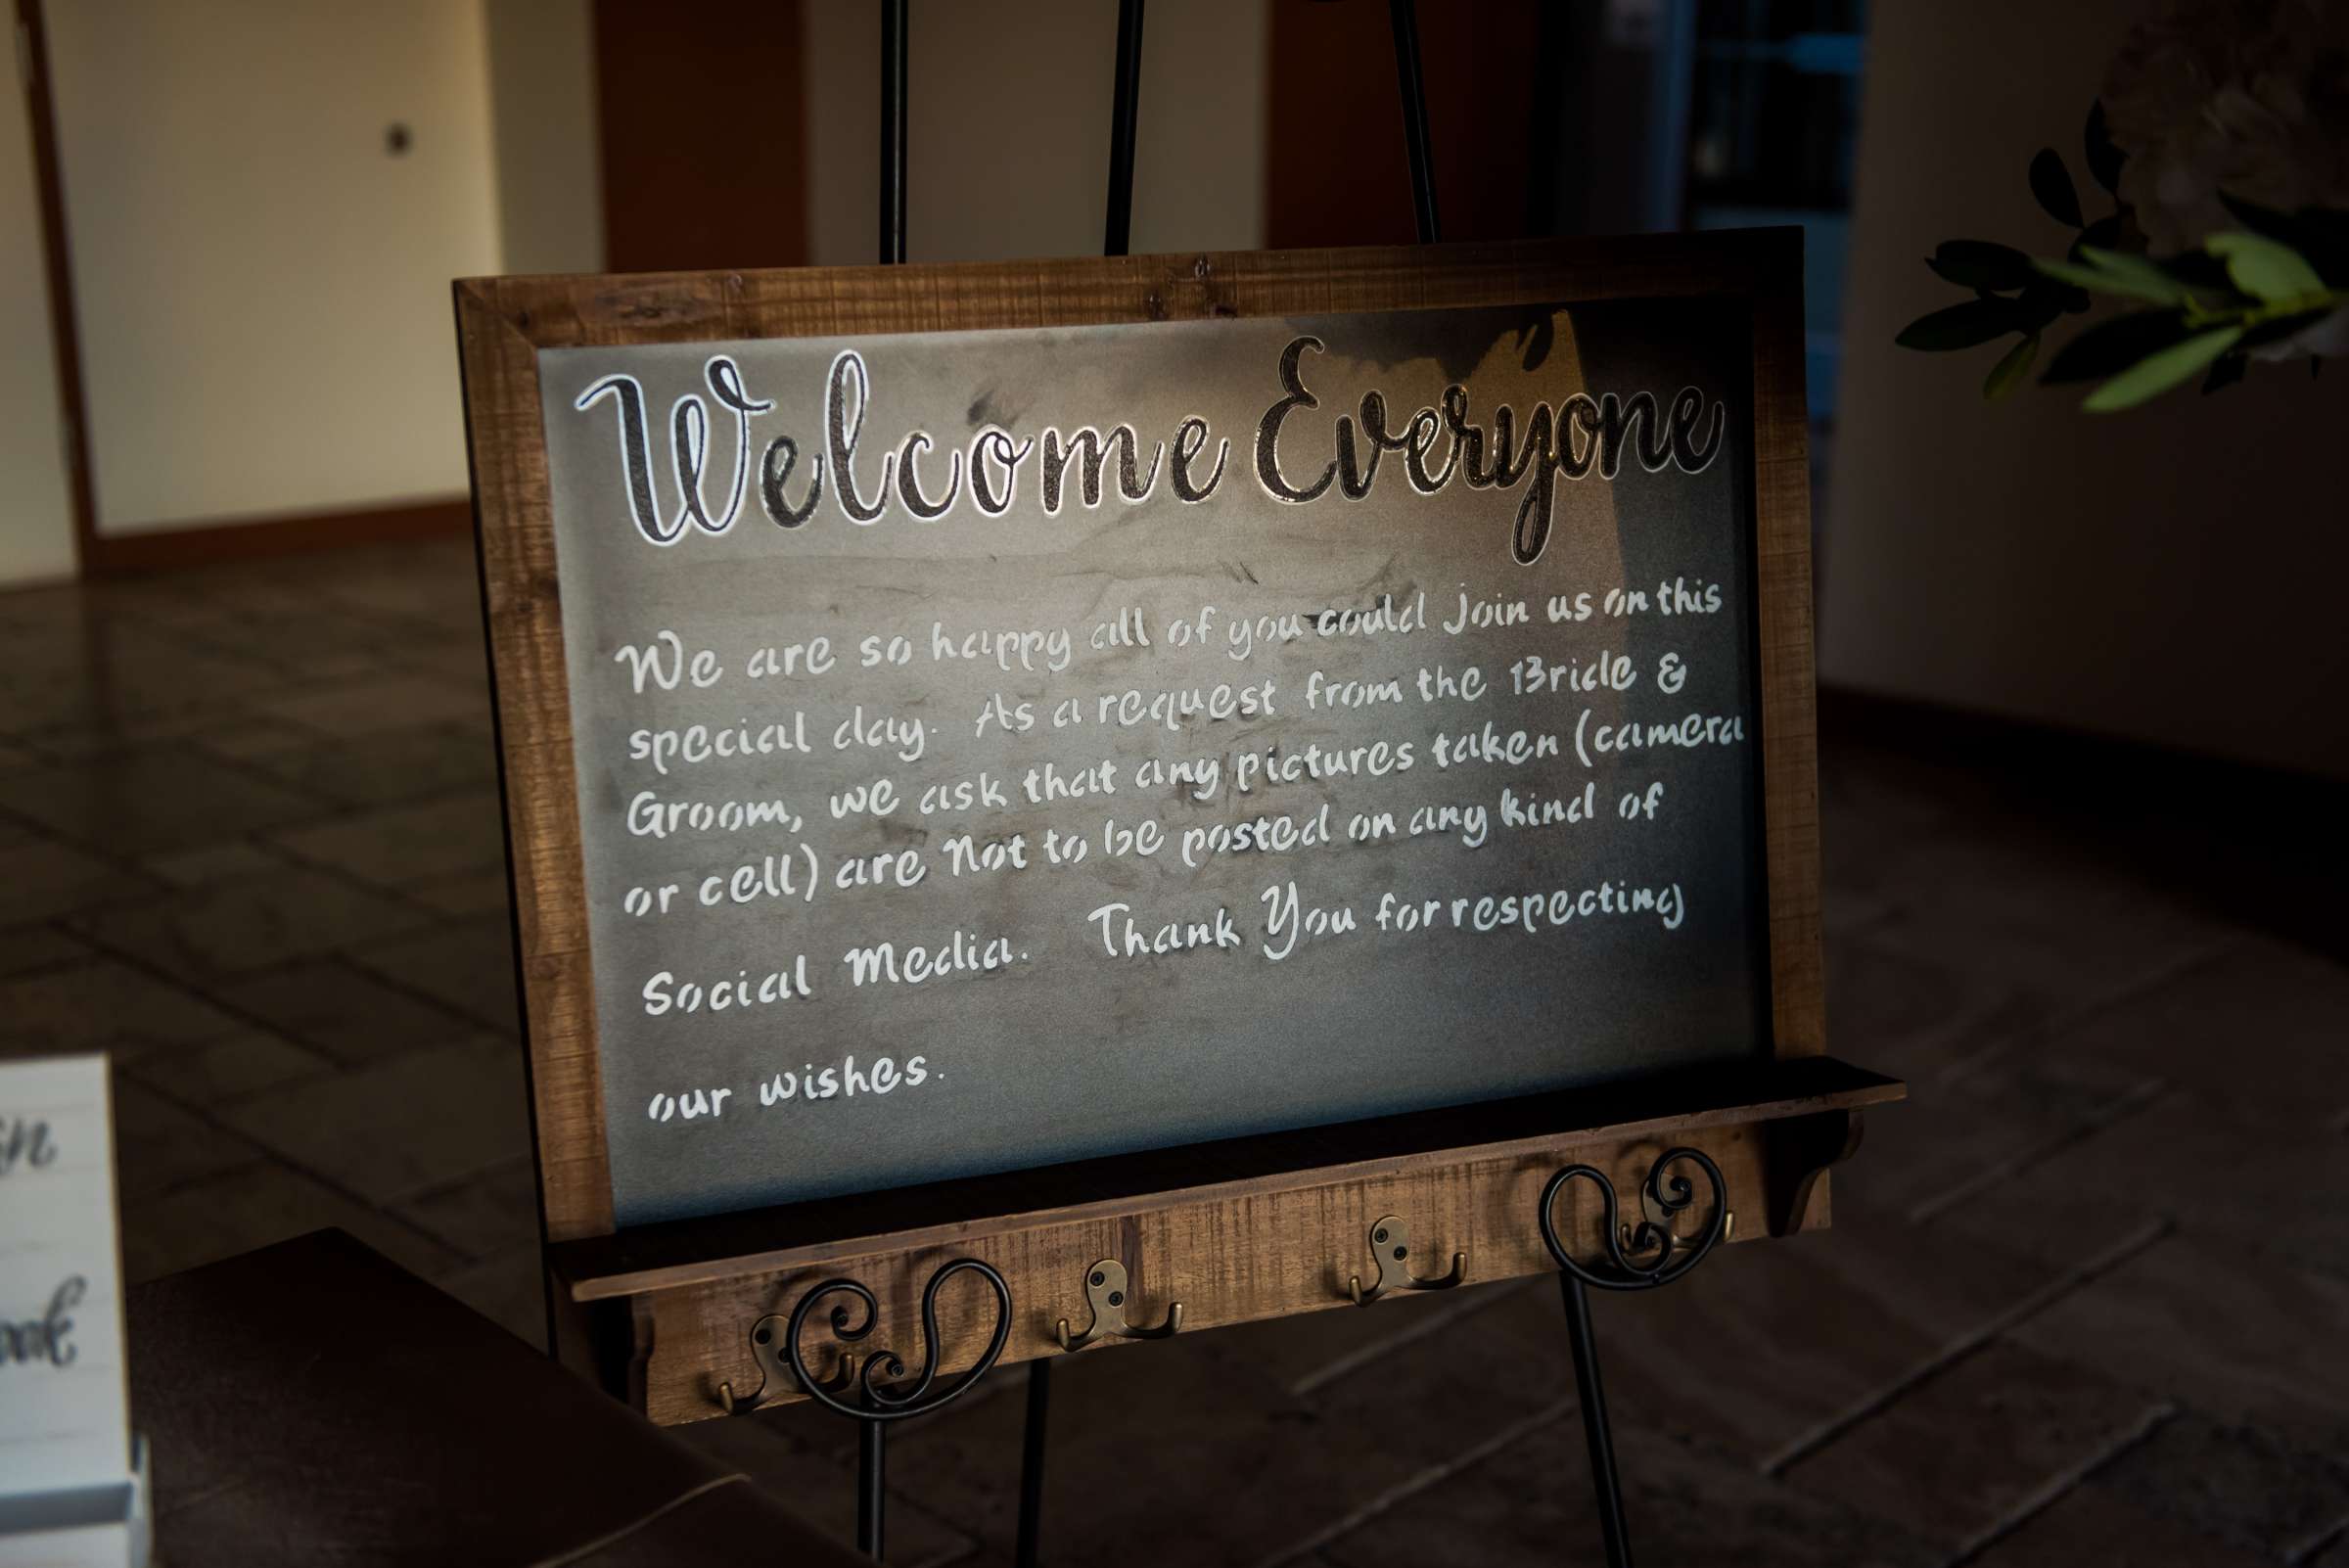 Welcome Everyone
We are so happy all of you could join us on this
special day. As a request from the Bride &
Groom, we ask that any pictures taken (camera
or cell) are Not to be posted on any kind of
Social Media. Thank You for respecting
our wishes.